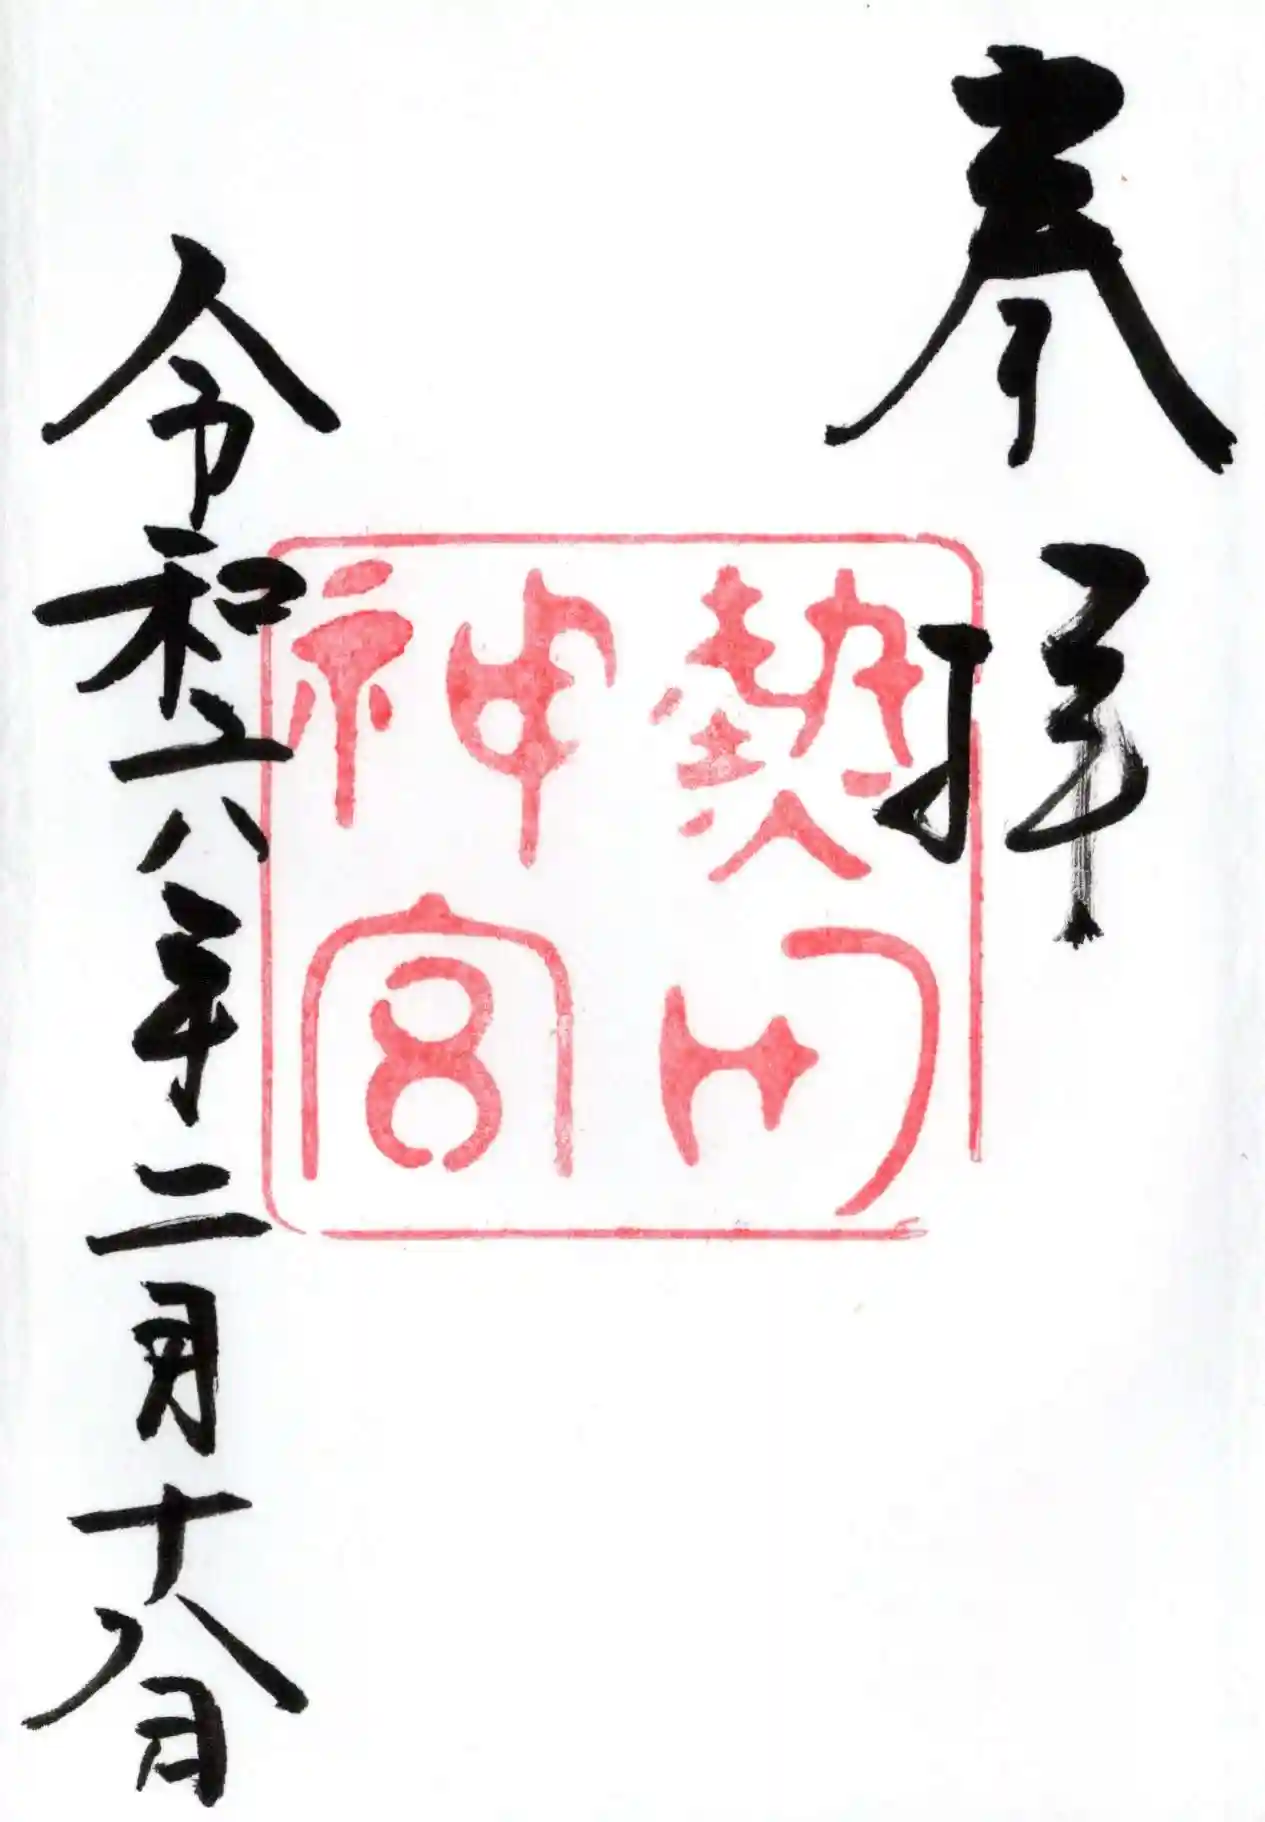 奉拝
熱田
神宮
令和六年二月十八日